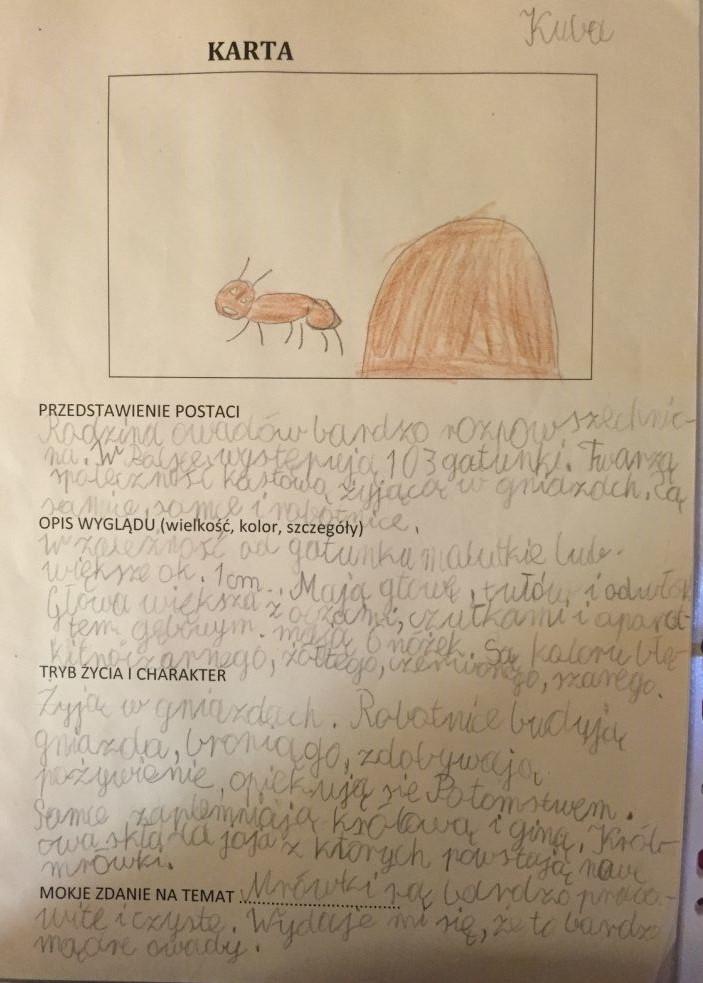 Kuba
KARTA
PRZEDSTAWIENIE POSTACI
Rodzina owadów bardzo rozpowszechnio-
na. W Polsce występują 103 gatunki. Tworzą
społeczność kastową żyjącą w gniazdach. Są
samice, samce i robotnice.
OPIS WYGLĄDU (wielkość, kolor, szczegóły)
W zależność od gatunku malutkie lub
większe ok. 1 cm. Mają głowę, tułów i odwłok
Głowa większa z oczami, czułkami i aparat-
tem gębowym. mają 6 nóżek. Są koloru błę-
kitno czarnego, żółtego, czerwonego, szarego.
TRYB ŻYCIA I CHARAKTER
Żyją w gniazdach. Robotnice budują
gniazda, bronią go, zdobywają
pożywienie, opiekują się Potomstwem.
Samce zaplemniają królową i giną. Król-
owa składa jaja z których powstają nowe
mrówki.
MOKJE ZDANIE NA TEMAT Mrówki są bardzo praco-
wite i czyste. Wydaje mi się, że to bardzo
mądre owady.